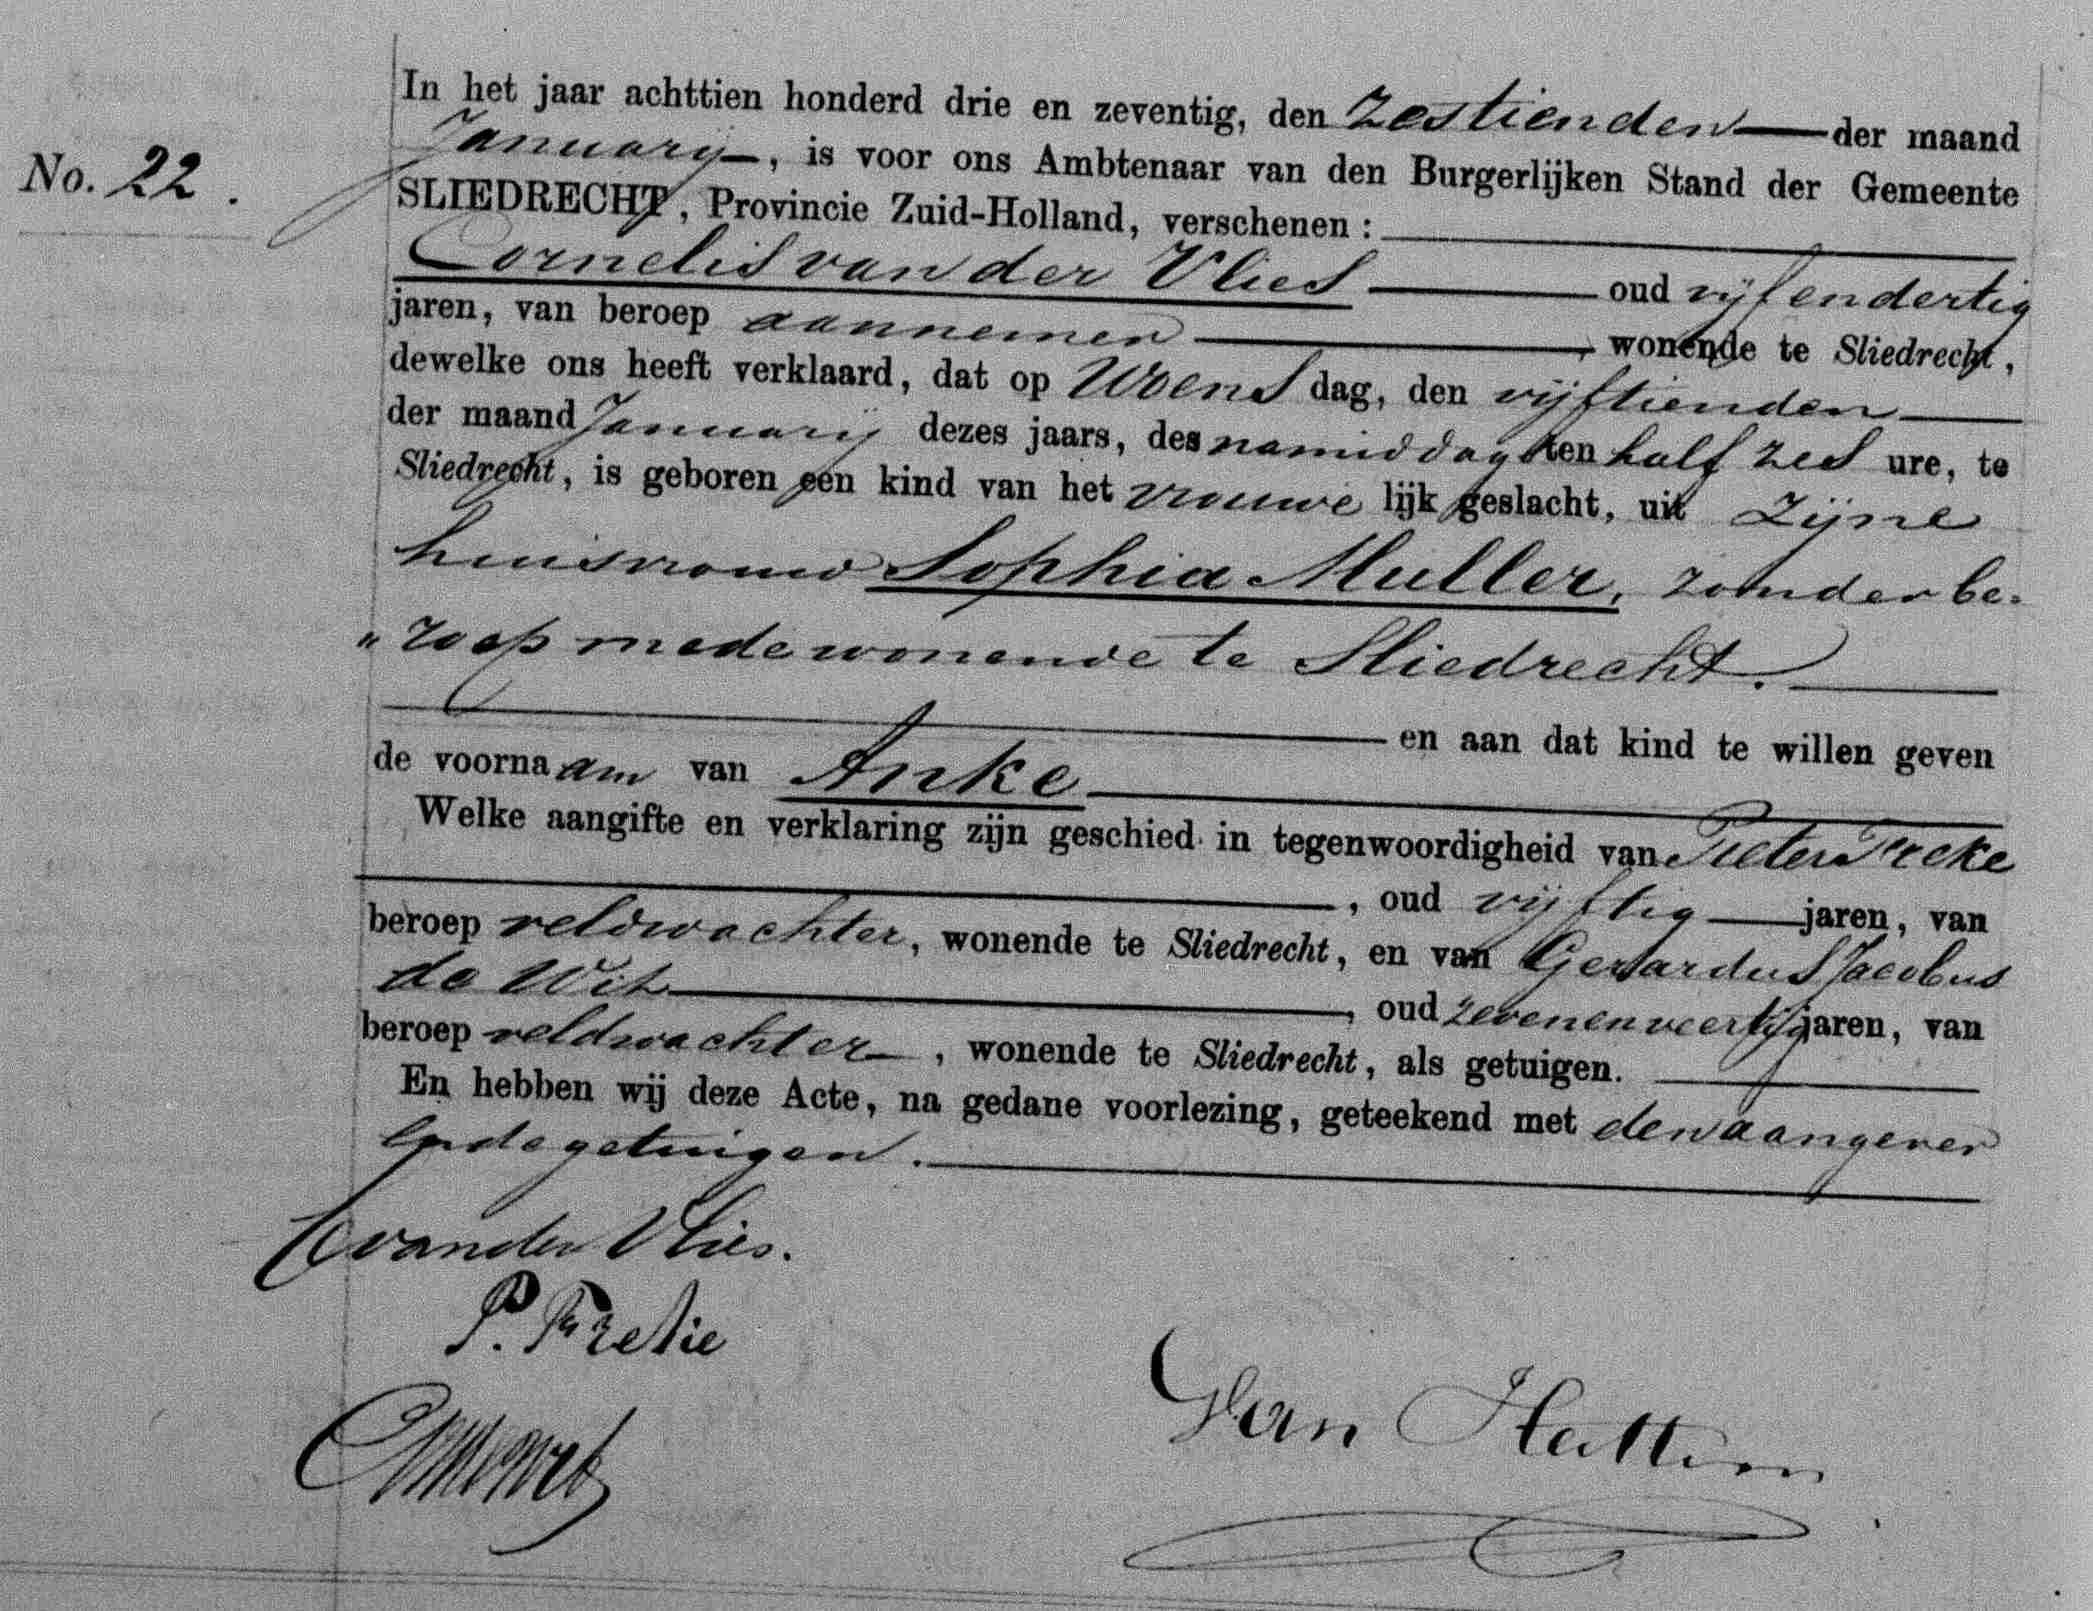 No. 22.
In het jaar achttien honderd drie en zeventig, den zestienden der maand
January, is voor ons Ambtenaar van den Burgerlijken Stand der Gemeente
SLIEDRECHT, Provincie Zuid-Holland, verschenen:
Cornelis van der Vlies oud vijfendertig
jaren, van beroep aannemer, wonende te Sliedrecht,
dewelke ons heeft verklaard, dat op Woensdag, den vijftienden
der maand January dezes jaars, des namiddags ten half zes ure, te
Sliedrecht, is geboren een kind van het vrouwelijk geslacht, uit zijne
huisvrouw Sophia Muller, zonder be-
"roep mede wonende te Sliedrecht.
en aan dat kind te willen geven
de voornaam van Anke
Welke aangifte en verklaring zijn geschied in tegenwoordigheid van Pieter
, oud vijftig jaren, van
beroep veldwachter, wonende te Sliedrecht, en van Gerardus Jacobus
de Wit, oud zevenenveertig jaren, van
beroep veldwachter, wonende te Sliedrecht, als getuigen.
En hebben wij deze Acte, na gedane voorlezing, geteekend met den aangever
en de getuigen.
C van der Vlies.
P.
Van Hattem